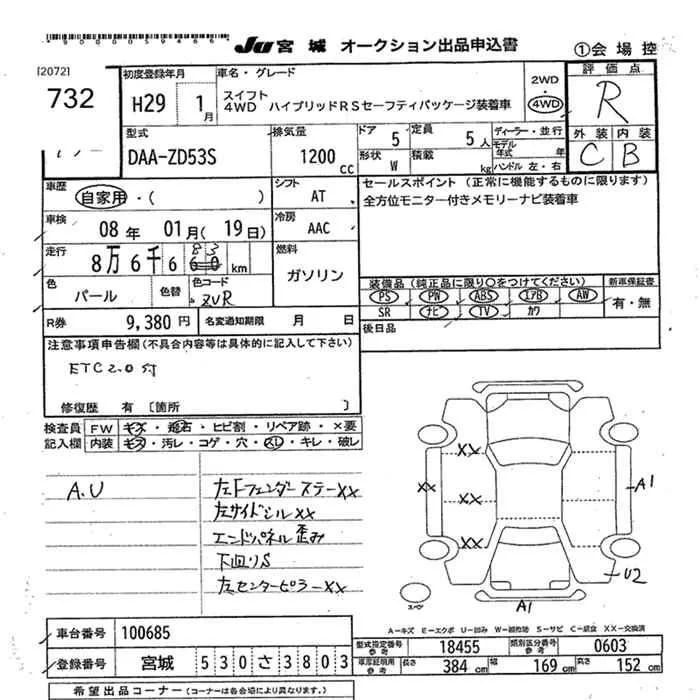 *9000059466*
JU 宮城 オークション出品申込書
①会場控
[2072]
732
初度登録年月
H29 1月
車名・グレード
スイフト
4WD ハイブリッドRSセーフティパッケージ装着車
2WD
・
4WD
評価点
R
外装 内装
C B
型式
DAA-ZD53S
排気量
1200 cc
ドア 5
定員 5人
形状 W
積載 kg
ディーラー・並行
モデル年式 年
ハンドル 左・右
車歴
自家用・( )
シフト
AT
セールスポイント (正常に機能するものに限ります)
全方位モニター付きメモリーナビ装着車
車検
08年 01月(19日)
冷房
AAC
走行
8万6千6 83
60 km
燃料
ガソリン
色
パール
色替
色コード
ZVR
装備品(純正品に限り○をつけてください)
PS PW ABS エアB AW
SR ナビ TV カワ
新車保証書
有・無
R券 9,380円
名変通知期限 月 日
後日品
注意事項申告欄(不具合内容等は具体的に記入して下さい)
ETC2.0付
修復歴 有 [箇所 ]
検査員
記入欄
FW キズ・飛石・ヒビ割・リペア跡・×要
内装 キズ・汚レ・コゲ・穴・スレ・キレ・破レ
A.U
左Fフェンダーステー××
左サイドシル××
エンドパネル歪み
下回りS
左センターピラー××
××
××
××
××
A1
U2
A1
スペア
A-キズ E-エクボ U-凹み W-補修跡 S-サビ C-腐食 XX-交換済
車台番号 100685
登録番号 宮城 530さ3803
型式指定番号
参考
18455
類別区分番号
参考
0603
車庫証明用
参考
長さ 384cm 幅 169cm 高さ 152cm
希望出品コーナー(コーナーは各会場により異なります。)